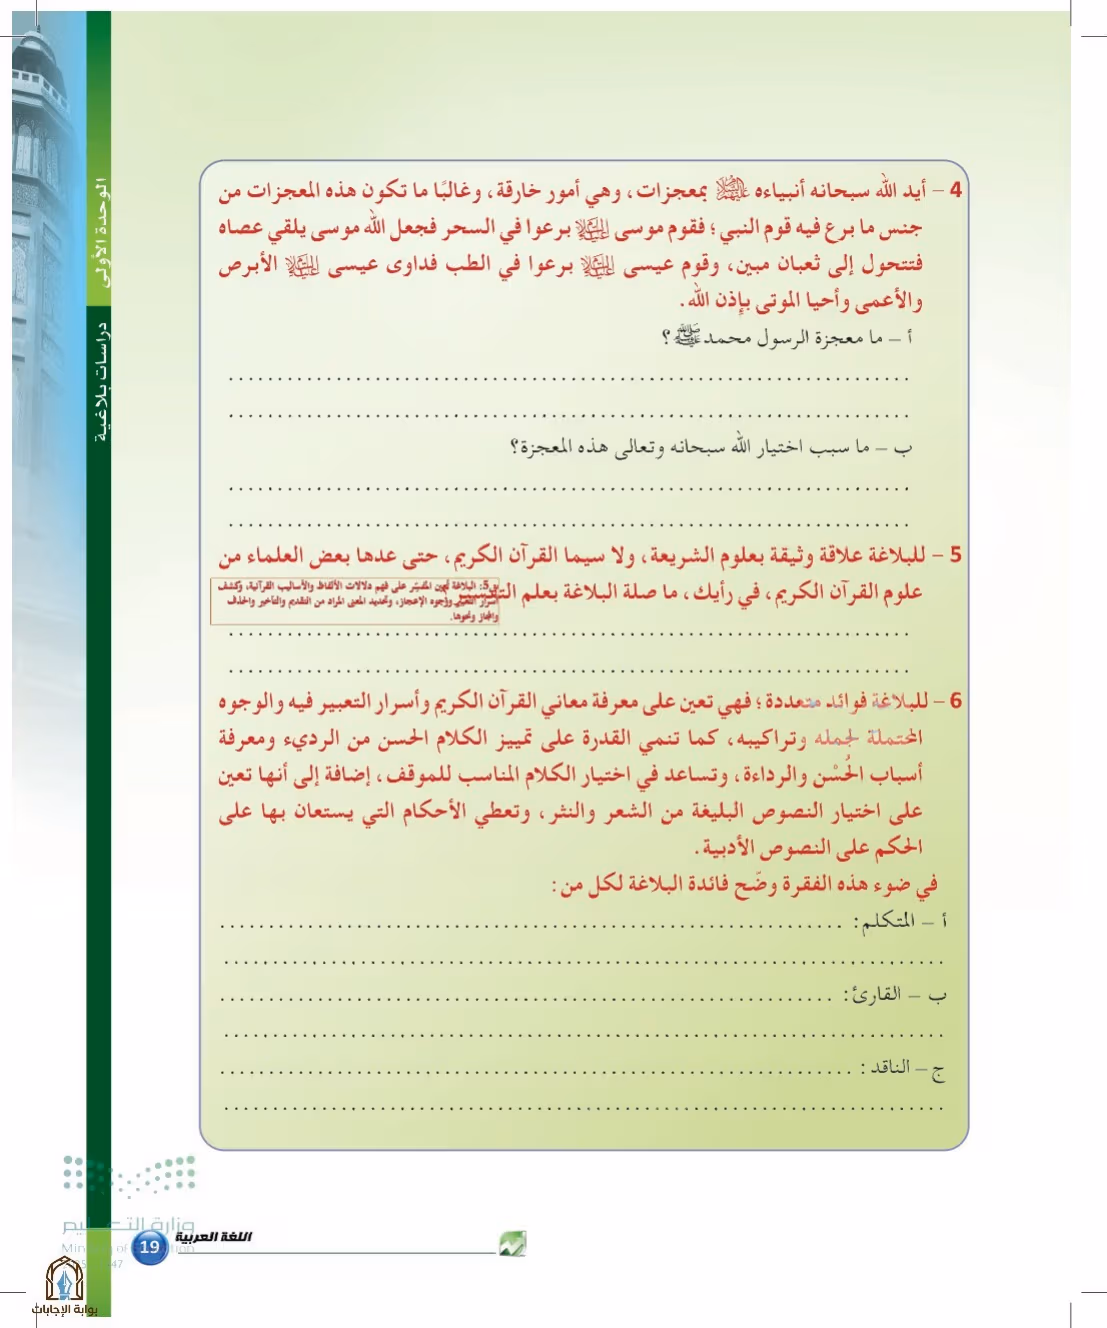 الوحدة الأولى
دراسات بلاغية
4 – أيد الله سبحانه أنبياءه عليهم السلام بمعجزات، وهي أمور خارقة، وغالبًا ما تكون هذه المعجزات من
جنس ما برع فيه قوم النبي؛ فقوم موسى عليه السلام برعوا في السحر فجعل الله موسى يلقي عصاه
فتتحول إلى ثعبان مبين، وقوم عيسى عليه السلام برعوا في الطب فداوى عيسى عليه السلام الأبرص
والأعمى وأحيا الموتى بإذن الله.
أ – ما معجزة الرسول محمد ﷺ؟
ب – ما سبب اختيار الله سبحانه وتعالى هذه المعجزة؟
5 – للبلاغة علاقة وثيقة بعلوم الشريعة، ولا سيما القرآن الكريم، حتى عدها بعض العلماء من
علوم القرآن الكريم، في رأيك، ما صلة البلاغة بعلم التفسير
5: البلاغة تعين المفسّر على فهم دلالات الألفاظ والأساليب القرآنية، وكشف
أسرار التعبير ووجوه الإعجاز، وتحديد المعنى المراد من التقديم والتأخير والحذف
والمجاز ونحوها.
6 – للبلاغة فوائد متعددة؛ فهي تعين على معرفة معاني القرآن الكريم وأسرار التعبير فيه والوجوه
المحتملة لجمله وتراكيبه، كما تنمي القدرة على تمييز الكلام الحسن من الرديء ومعرفة
أسباب الحُسْن والرداءة، وتساعد في اختيار الكلام المناسب للموقف، إضافة إلى أنها تعين
على اختيار النصوص البليغة من الشعر والنثر، وتعطي الأحكام التي يستعان بها على
الحكم على النصوص الأدبية.
في ضوء هذه الفقرة وضّح فائدة البلاغة لكل من:
أ – المتكلم:
ب – القارئ:
ج – الناقد:
وزارة التعليم
Ministry of Education
اللغة العربية
19
بوابة الإجابات